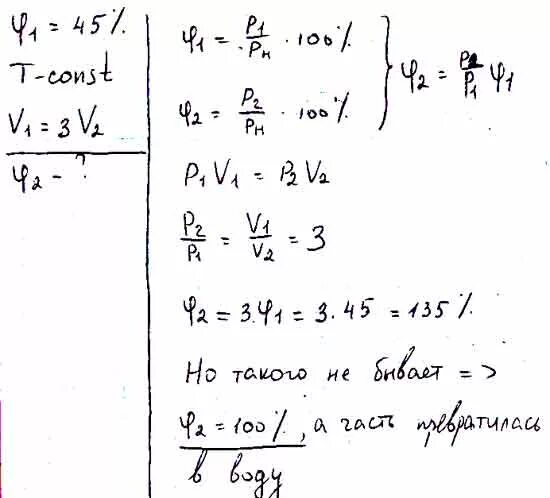 φ₁ = 45%
T-const
V₁ = 3 V₂
φ₂ - ?
φ₁ = P₁/Pн · 100%
φ₂ = P₂/Pн · 100%
φ₂ = P₂/P₁ φ₁
P₁ V₁ = P₂ V₂
P₂/P₁ = V₁/V₂ = 3
φ₂ = 3·φ₁ = 3 · 45 = 135%
Но такого не бывает =>
φ₂ = 100%, а часть превратилась
в воду